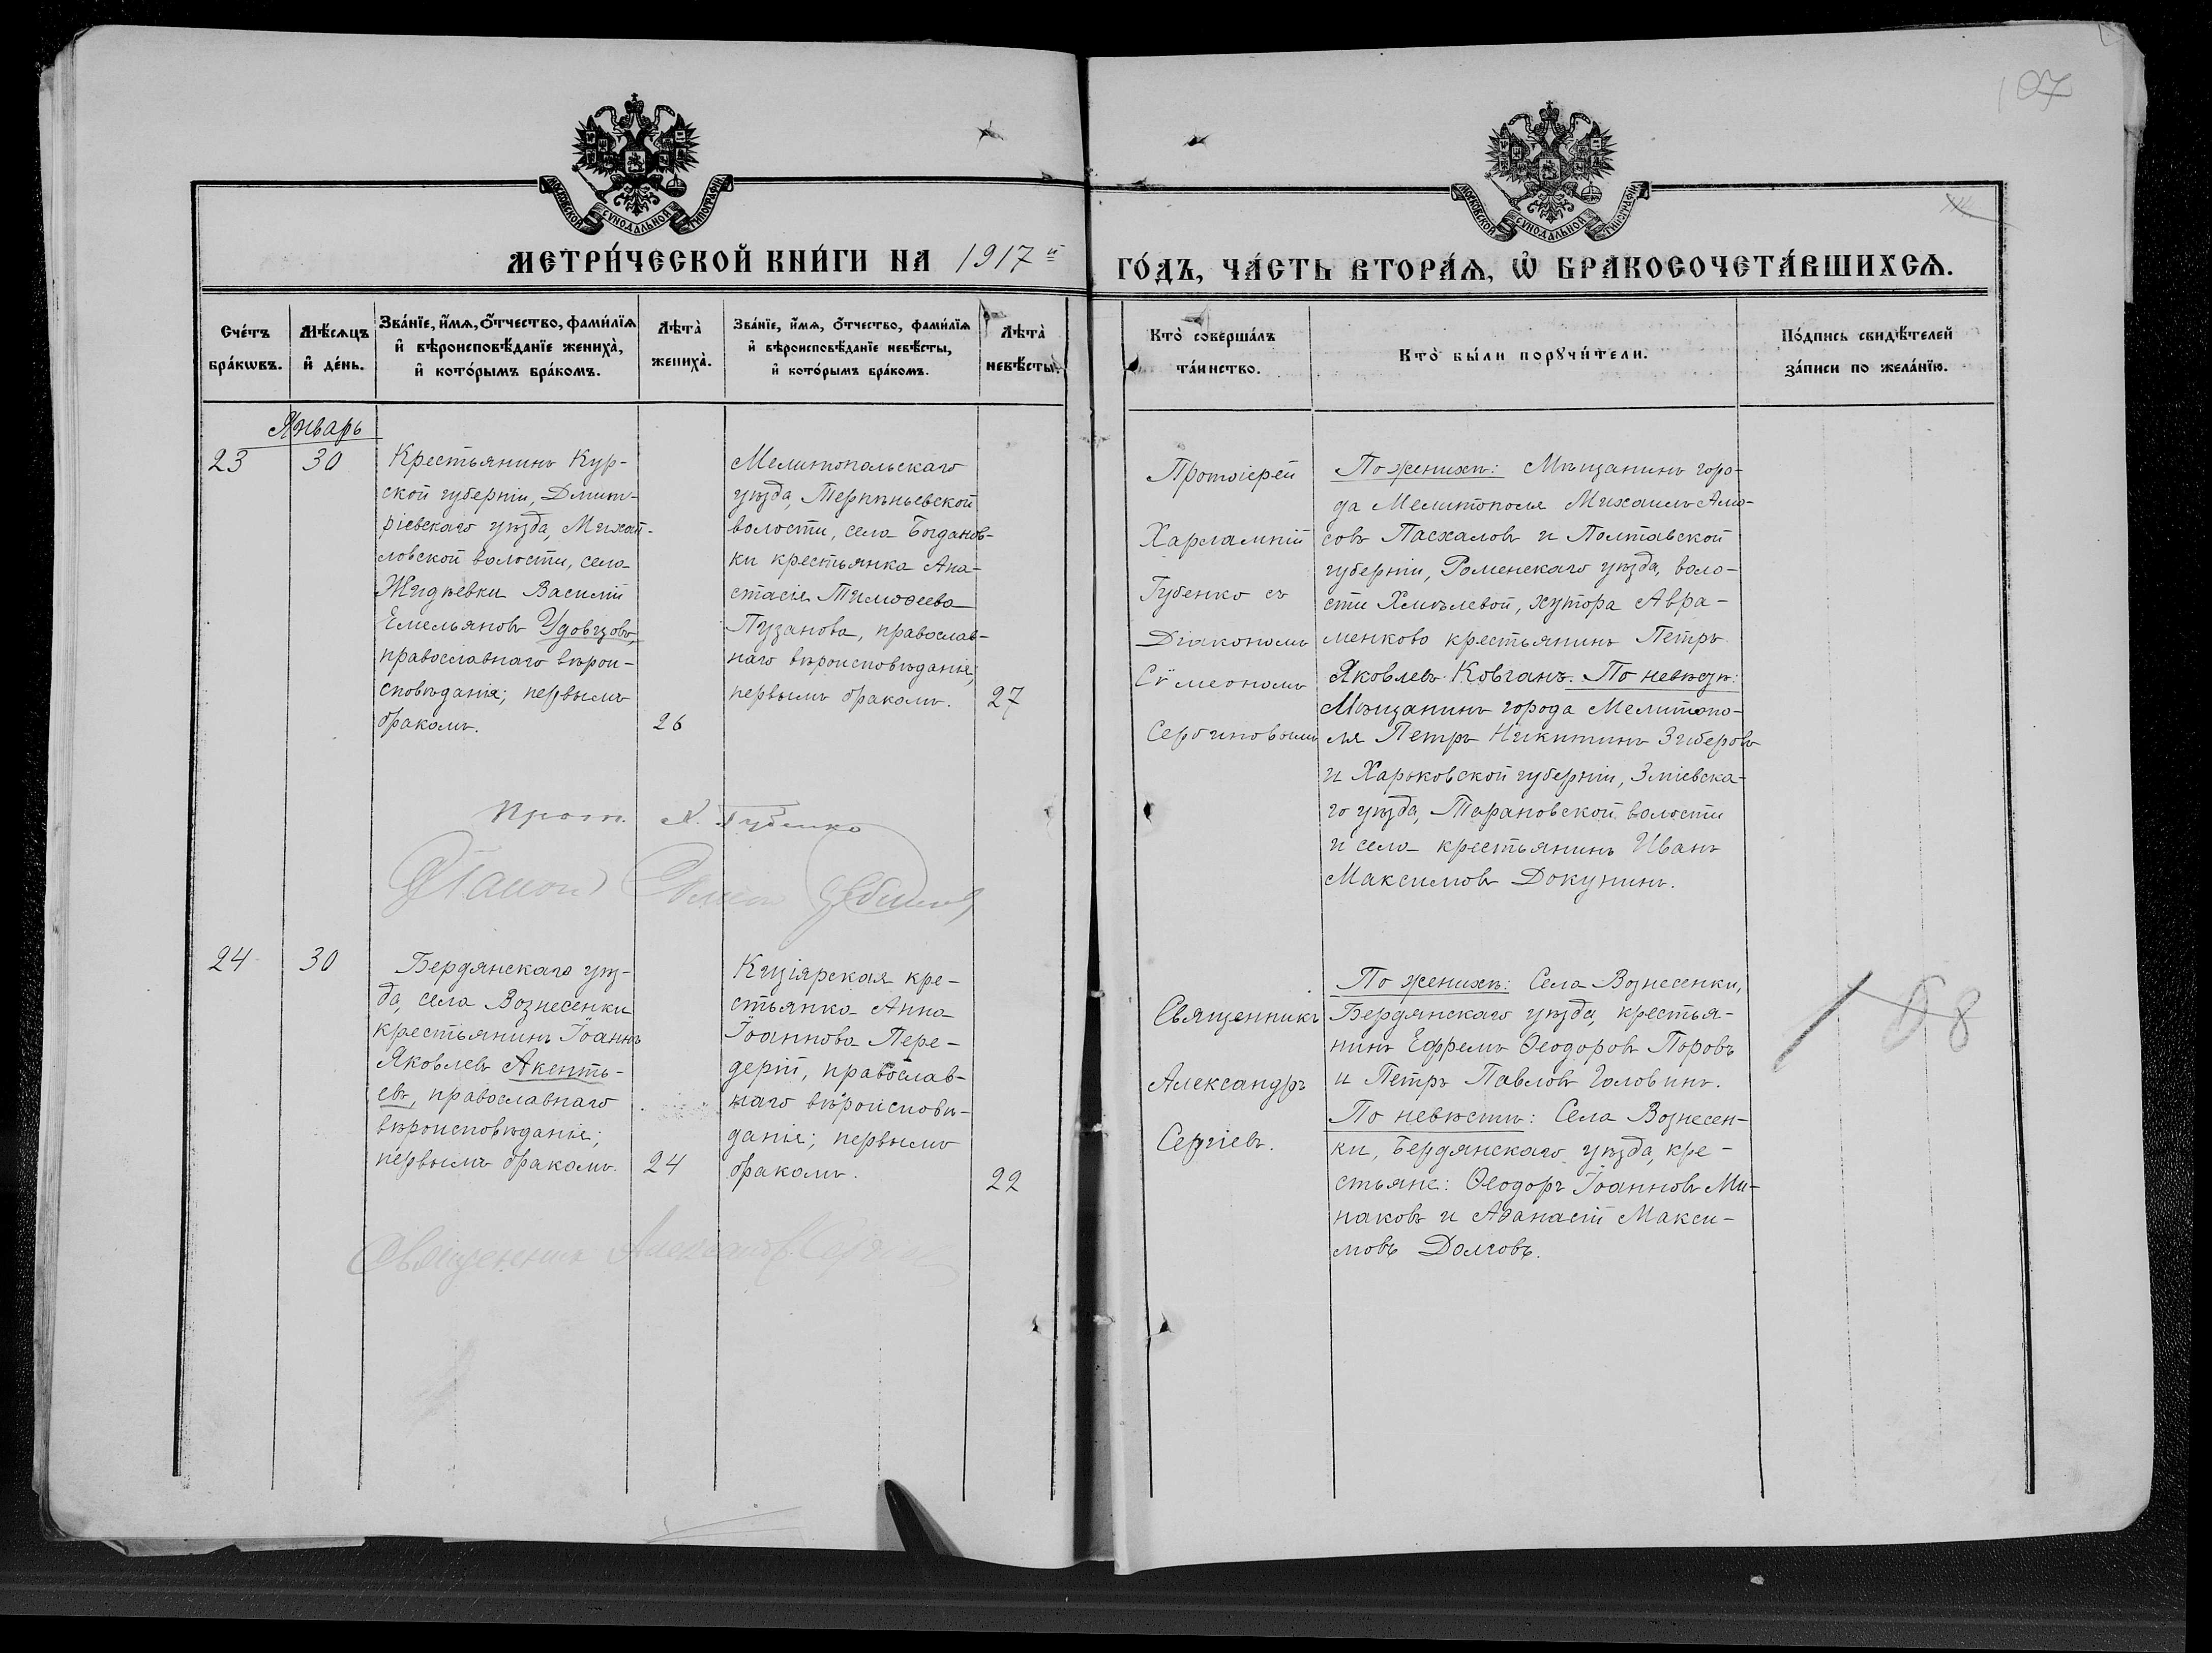 107
МОСКОВСКОЙ СУНОДАЛЬНОЙ ТИПОГРАФІИ
МОСКОВСКОЙ СУНОДАЛЬНОЙ ТИПОГРАФІИ
МЕТРИ́ЧЕСКОЙ КНИ́ГИ НА 1917 й
ГО́ДЪ, ЧА́СТЬ ВТОРА́Ѧ, Ѡ҆ БРАКОСОЧЕТА́ВШИХСѦ.
Сче́тъ
бра́кѡвъ.
Мѣ́сѧцъ
и҆ де́нь.
Зва́нїе, и҆́мѧ, ѻ҆́тчество, фами́лїѧ
и҆ вѣроисповѣ́данїе жениха̀,
и҆ кото́рымъ бра́комъ.
Лѣта̀
жениха̀.
Зва́нїе, и҆́мѧ, ѻ҆́тчество, фами́лїѧ
и҆ вѣроисповѣ́данїе невѣ́сты,
и҆ кото́рымъ бра́комъ.
Лѣта̀
невѣ́сты.
Кто̀ соверша́лъ
та́инство.
Кто̀ бы́ли порꙋчи́тели.
По́дпись свидѣ́телей
за́писи по жела́нїю.
Январь
23
30
Крестьянинъ Кур-
ской губерніи, Дмит-
ріевскаго уѣзда, Михай-
ловской волости, села
Жидѣевки Василій
Емельяновъ Удовцовъ,
православнаго вѣрои-
сповѣданія; первымъ
бракомъ.
26
Мелитопольскаго
уѣзда, Терпѣньевской
волости, села Богданов-
ки крестьянка Ана-
стасія Тимоѳеева
Пузанова, православ-
наго вѣроисповѣданіе;
первымъ бракомъ.
27
Протоіерей
Харлампій
Губенко съ
Діакономъ
Сѵмеономъ
Сербиновымъ
По женихѣ: Мѣщанинъ горо-
да Мелитополя Михаилъ Амо-
совъ Пасхаловъ и Полтавской
губерніи, Роменскаго уѣзда, воло-
сти Хмѣлевой, хутора Авра-
менково крестьянинъ Петръ
Яковлевъ Ковганъ. По невѣстѣ:
Мѣщанинъ города Мелитопо-
ля Петръ Никитинъ Зиберовъ
и Харьковской губерніи, Зміевска-
го уѣзда, Тарановской волости
и села крестьянинъ Иванъ
Максимовъ Докунинъ.
Прот. Х. Губенко
24
30
Бердянскаго уѣз-
да, села Вознесенки
крестьянинъ Іоаннъ
Яковлевъ Акенть-
евъ, православнаго
вѣроисповѣданіе;
первымъ бракомъ.
24
Кизіярская кре-
стьянка Анна
Іоаннова Пере-
дерій, православ-
наго вѣроисповѣ-
даніе; первымъ
бракомъ.
22
Священникъ
Александръ
Сергіевъ.
По женихѣ: Села Вознесенки,
Бердянскаго уѣзда, крестья-
нинъ Ефремъ Ѳеодоровъ Поровъ
и Петръ Павловъ Головинъ.
По невѣстѣ: Села Вознесен-
ки, Бердянскаго уѣзда, кре-
стьяне: Ѳеодоръ Іоанновъ Ми-
наковъ и Аѳанасій Макси-
мовъ Долговъ.
Священникъ Александръ Сергіевъ